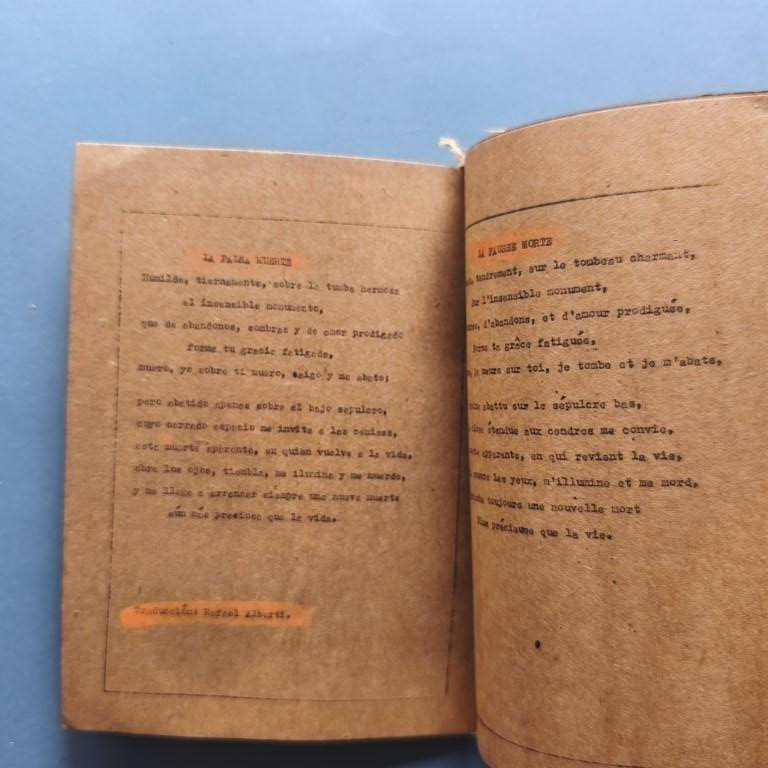 LA FALSA MUERTE
Humilde, tiernamente, sobre la tumba hermosa
el insensible monumento,
que de abandonos, sombras y de amor prodigado
forma tu gracia fatigada,
muero, yo sobre ti muero, caigo y me abato;
pero abatido apenas sobre el bajo sepulcro,
cuyo cerrado espacio me invita a las cenizas,
esta muerte aparente, en quien vuelve a la vida,
abre los ojos, tiembla, me ilumina y me muerde,
y me llega a arrancar siempre una nueva muerte
aún más preciosa que la vida.
Traducción: Rafael Alberti.
LA FAUSSE MORTE
tendrement, sur le tombeau charmant,
l'insensible monument,
d'abandons, et d'amour prodiguée,
ta grâce fatiguée,
je meurs sur toi, je tombe et je m'abats,
abattu sur le sépulcre bas,
étendue aux cendres me convie,
apparente, en qui revient la vie,
les yeux, m'illumine et me mord,
toujours une nouvelle mort
précieuse que la vie.